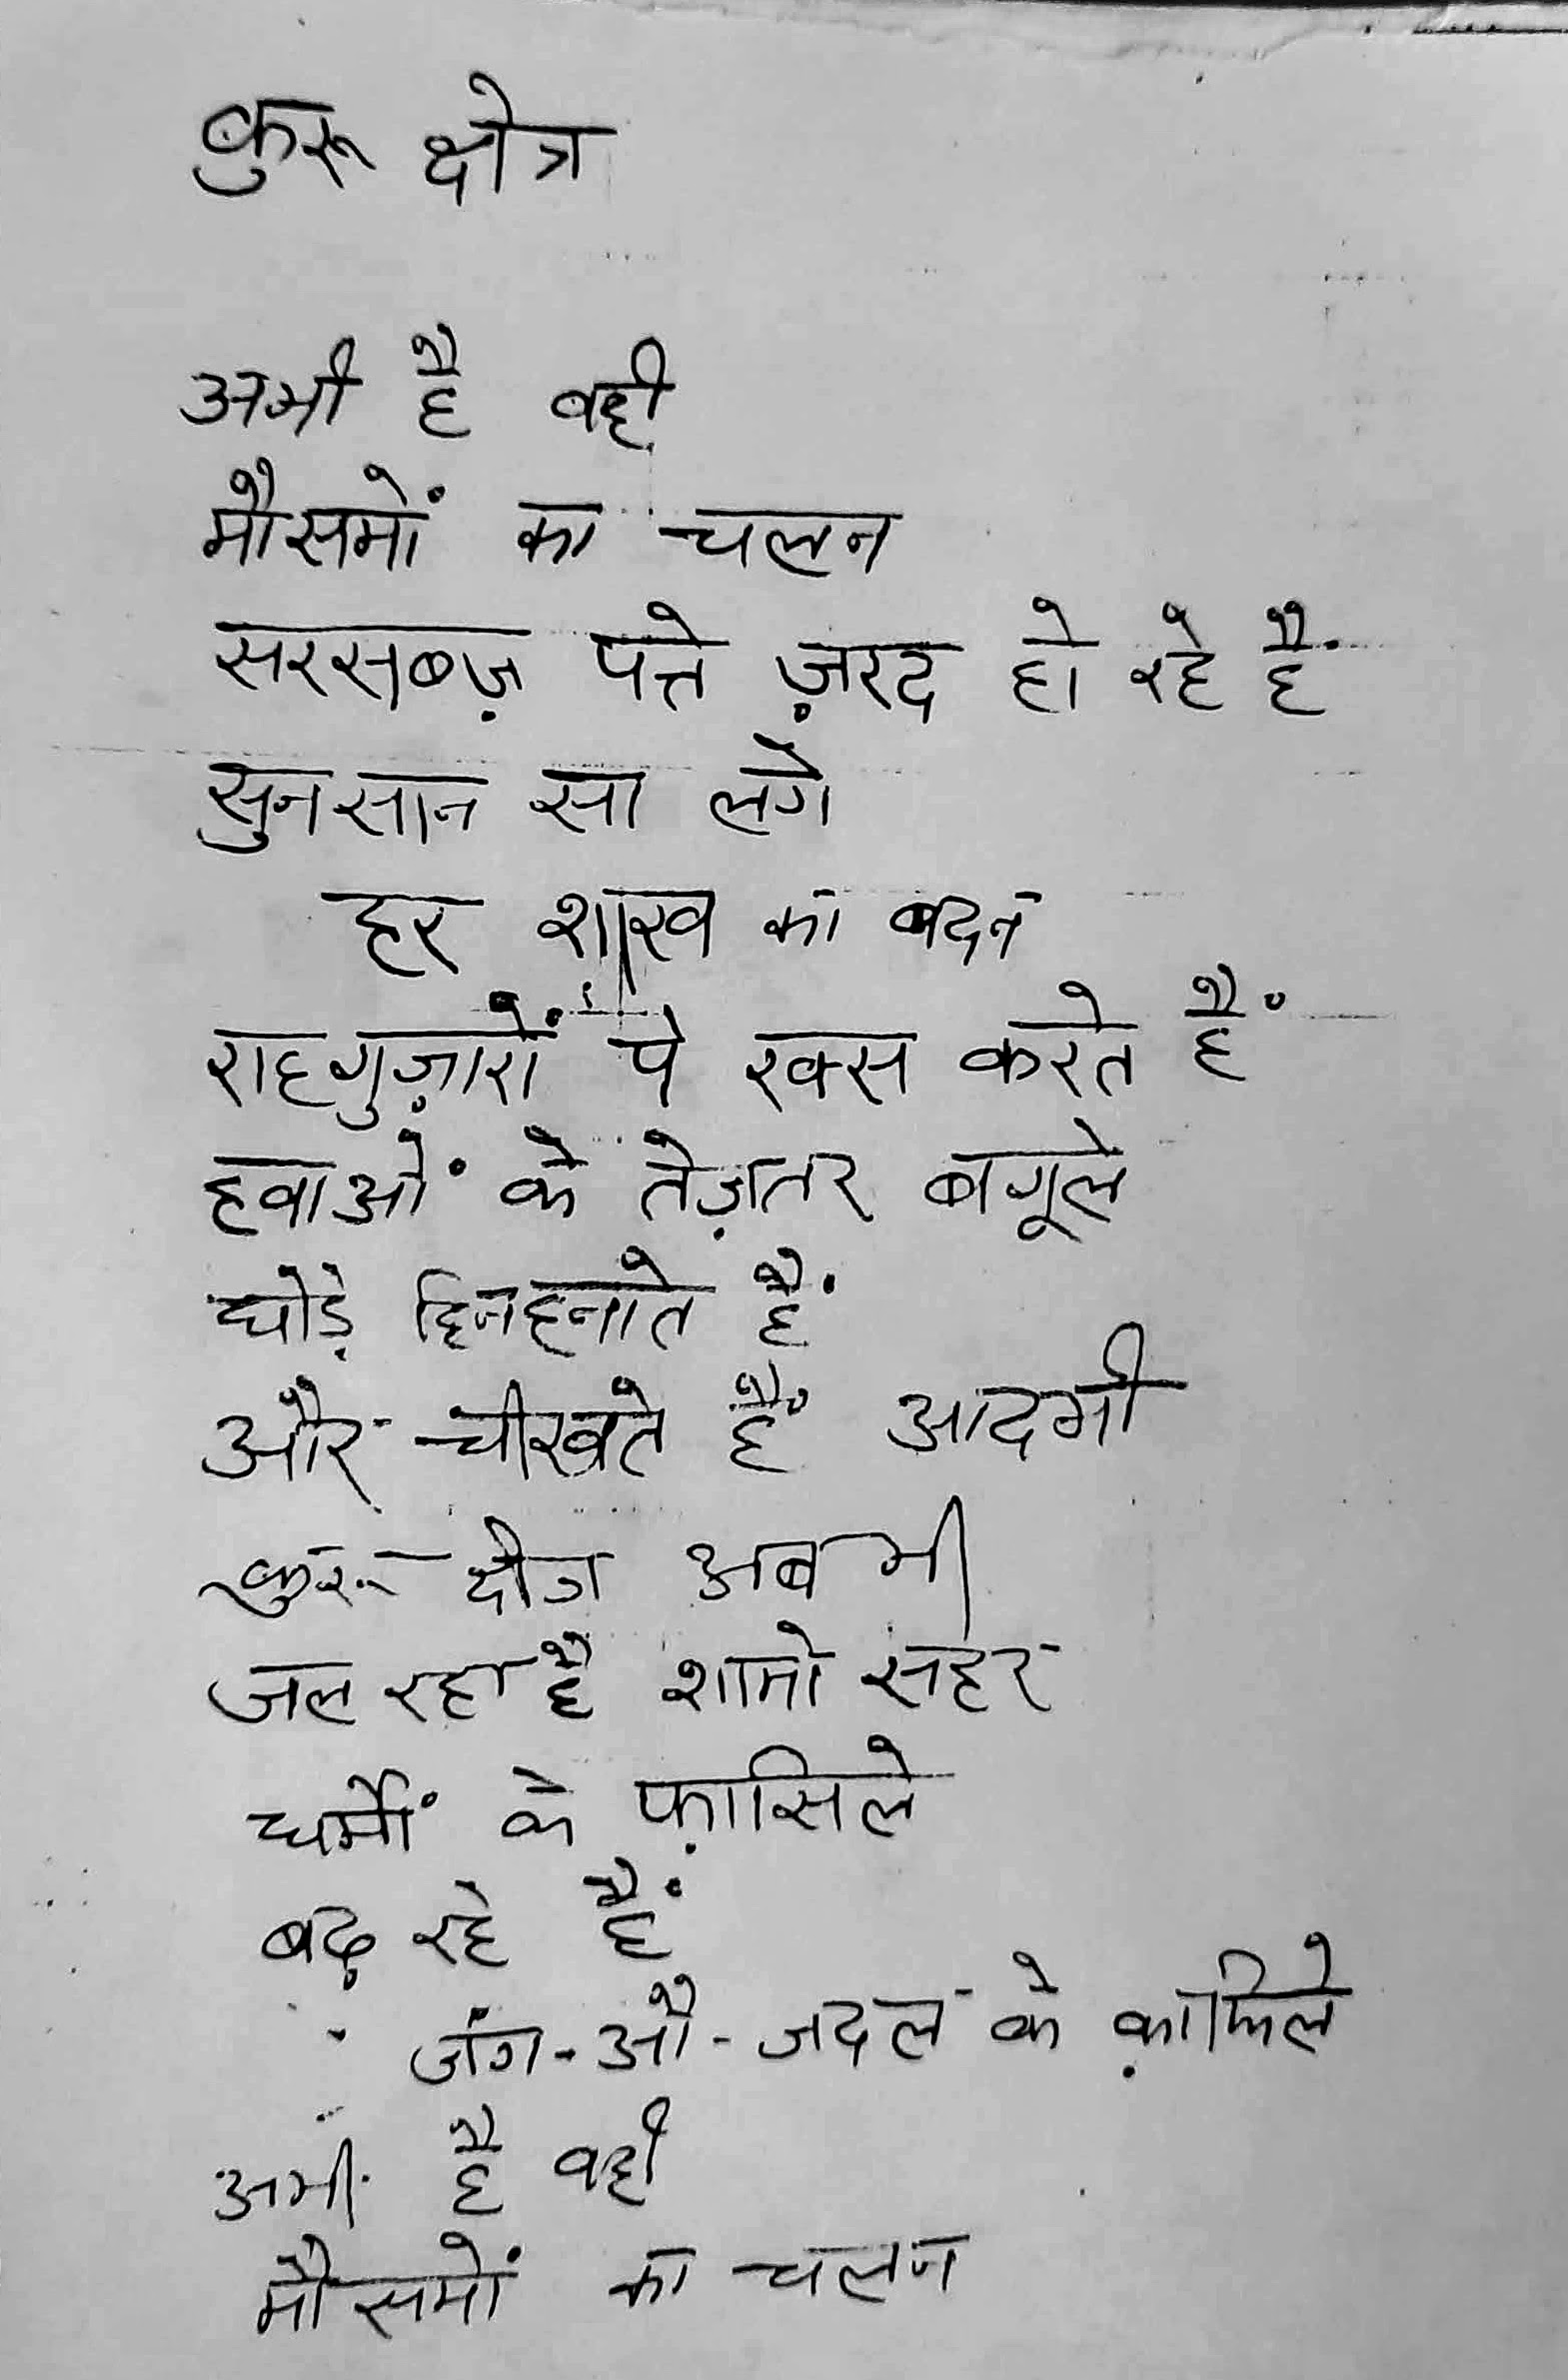 कुरू क्षेत्र
अभी है वही
मौसमों का चलन
सरसब्ज़ पत्ते ज़रद हो रहे हैं
सुनसान सा लगे
हर शाख का बदन
राहगुज़ारों पे रक्स करते हैं
हवाओं के तेज़तर बगूले
घोड़े हिनहनाते हैं
और चीखते हैं आदमी
कुरू क्षेत्र अब भी
जल रहा है शामो सहर
धर्मों के फ़ासिले
बढ़ रहे हैं
जंग-औ-जदल के क़ाफिले
अभी है वही
मौसमों का चलन